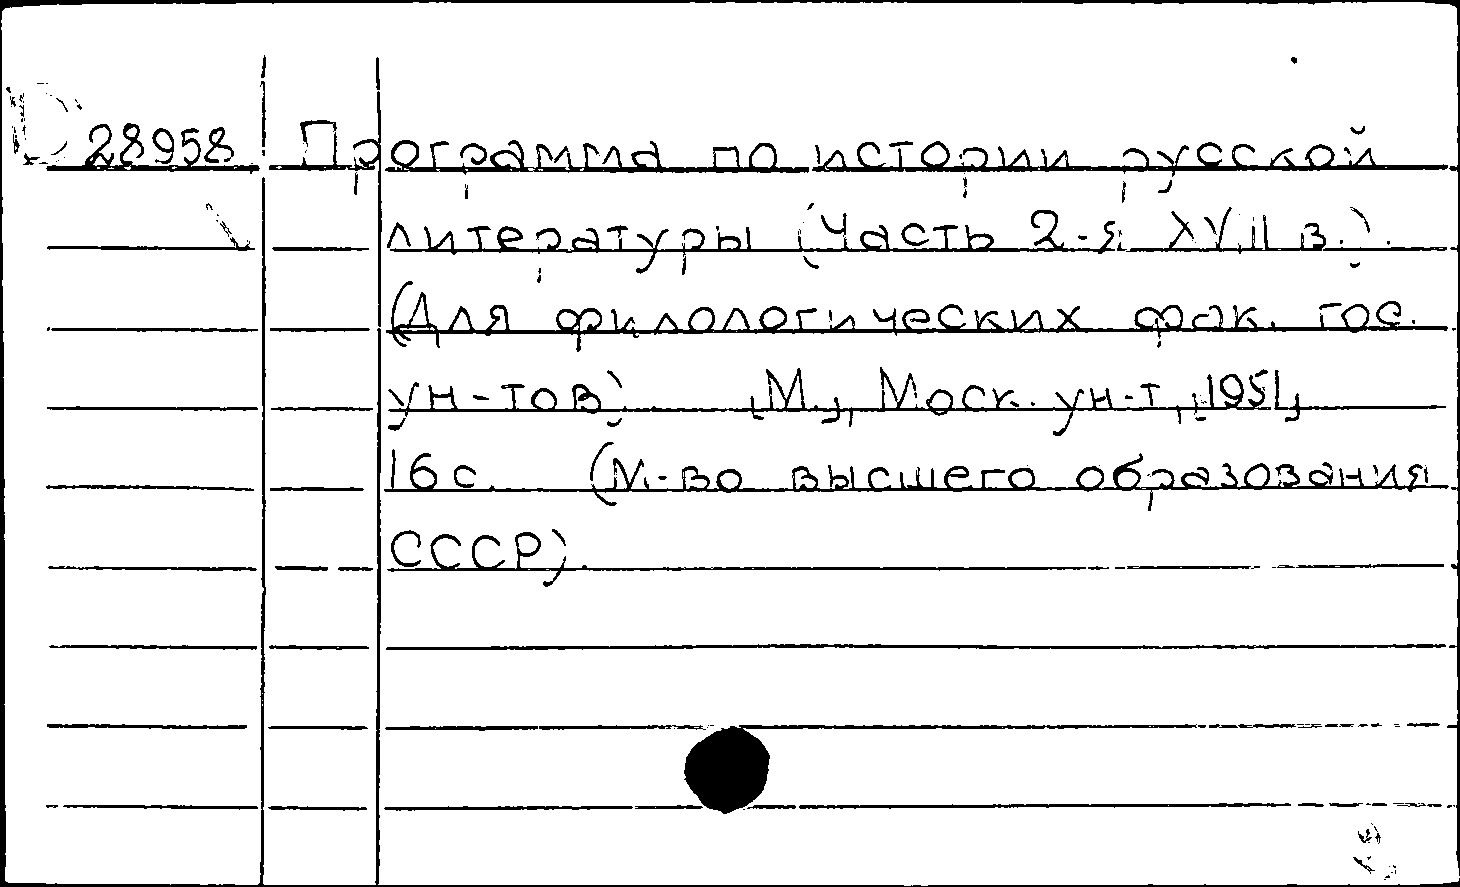 D 28958 Программа по истории русской
литературы (Часть 2-я XVIII в.).
(Для филологических фак. гос.
ун-тов) [М.], Моск. ун-т, [1951]
16 с. (М-во высшего образования
СССР).